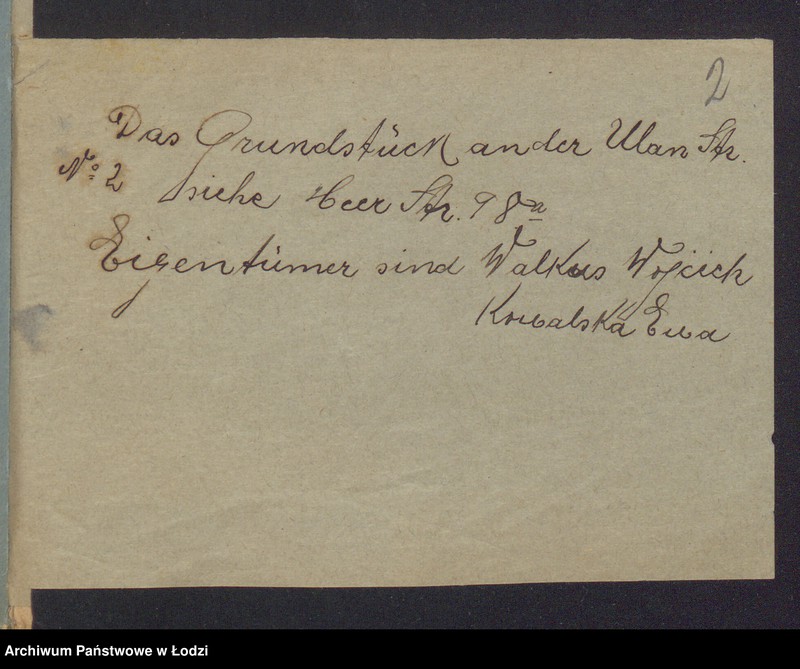 2
Das Grundstück an der Ulan Str.
No 2 siehe Heer Str. 98a
Eigentümer sind Walkus Wojcich
Kowalska Ewa
Archiwum Państwowe w Łodzi